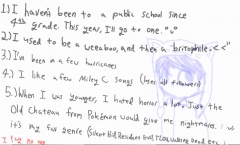 1) I haven't been to a public school since
4th grade. This year, I'll go to one. °o°
2) I used to be a weeaboo, and then a britophile. <<
3.) I've been in a few hurricanes
4.) I like a few Miley C songs (loses all followers)
5.) When I was younger, I hated horror a lot. Just the
Old Chateau from Pokémon would give me nightmares.
it's my fav genre (Silent Hill, Resident Evil, Walking Dead, etc.)
I